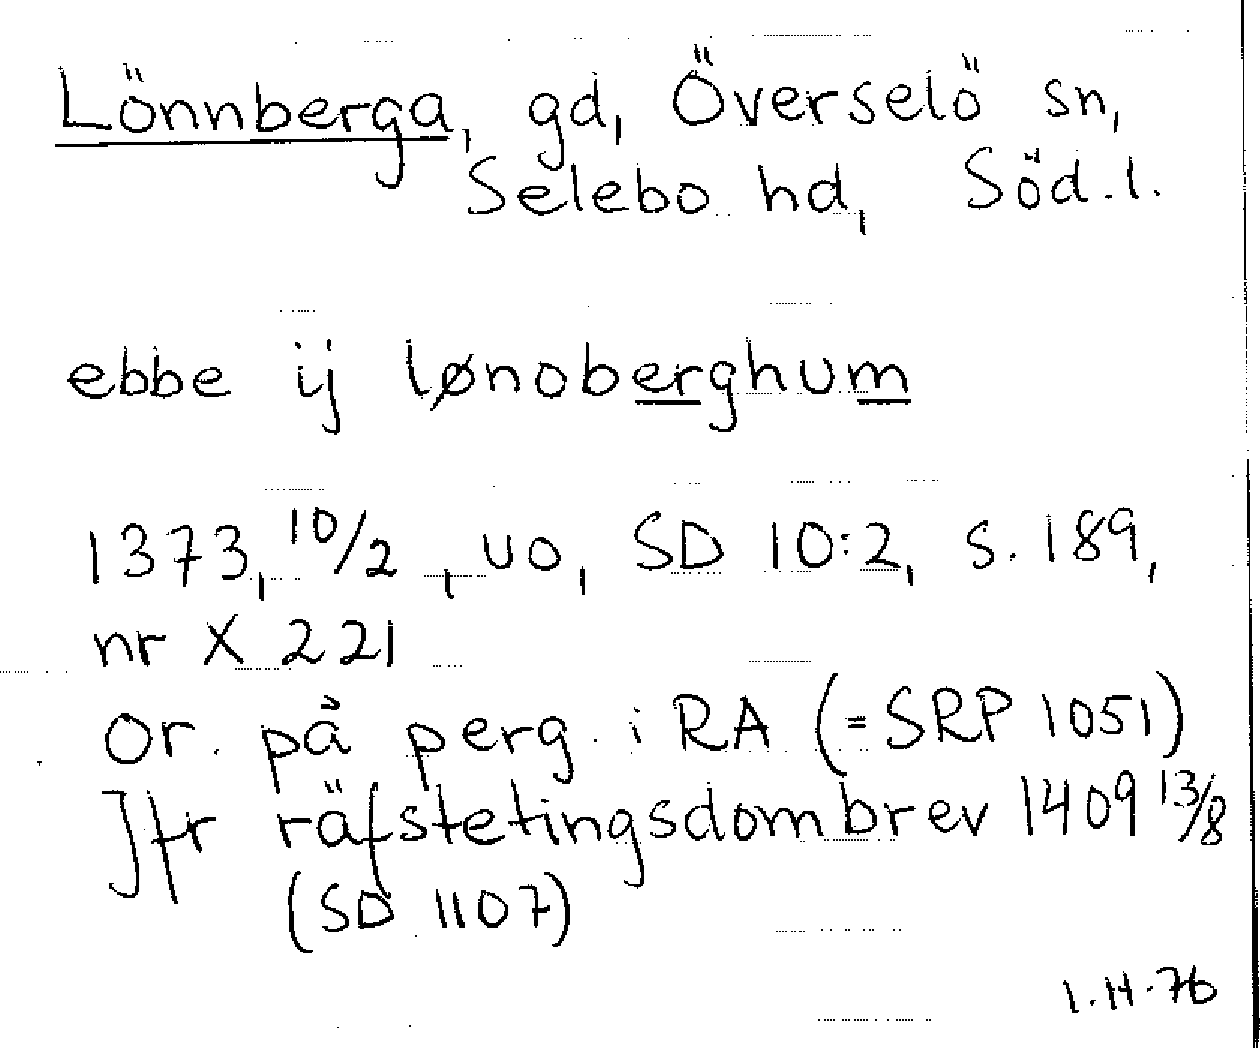 Lönnberga, gd, Överselö sn,
Selebo hd, Söd.l.
ebbe ij lønoberghum
1373, 10/2, uo, SD 10:2, s. 189,
nr X 221
or. på perg. i RA (=SRP 1051)
Jfr räfstetingsdombrev 1409 13/8
(SD 1107)
I.H.76